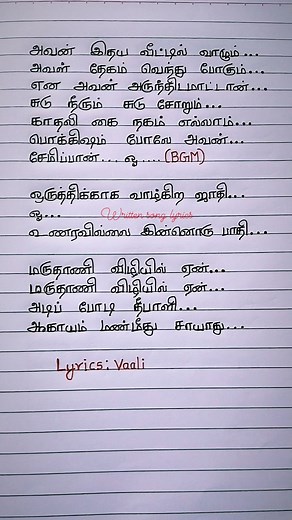 அவன் இதய வீட்டில் வாழும்...
அவள் தேகம் வெந்து போகும்...
என அவன் அருந்திடமாட்டான்...
சுடு நீரும் சுடு சோறும்...
காதலி கை நகம் எல்லாம்...
பொக்கிஷம் போலே அவன்...
சேமிப்பான்... ஒ ....(BGM)
ஒருத்திக்காக வாழ்கிற ஜாதி...
ஓ...
Written song lyrics
உணரவில்லை இன்னொரு பாதி...
மருதாணி விழியில் ஏன்...
மருதாணி விழியில் ஏன்...
அடிப் போடி தீபாளி...
ஆகாயம் மண்மீது சாயாது...
Lyrics: Vaali